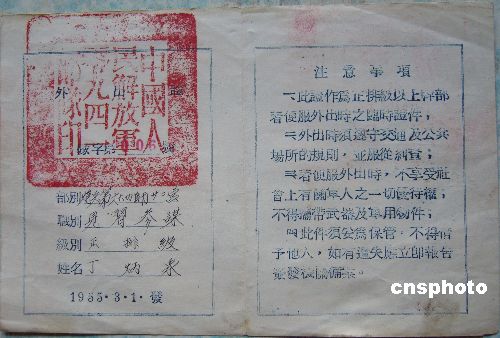 中國人
民解放軍
九四
部隊印
外出證
字第 號
部別
職別 見習參謀
級別 正排級
姓名 丁炳東
1955·3·1·發
注意事項
一、此證作為正排級以上幹部
著便服外出時之臨時證件；
二、外出時須遵守交通及公共
場所的規則，並服從糾查；
三、著便服外出時，不享受社
會上有關軍人之一切優待權；
不得攜帶武器及軍用物件；
四、此件須妥為保管，不得借
予他人，如有遺失應立即報告
cnsphoto